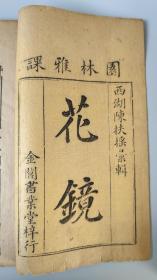 園林雅課
西湖陳扶搖彙輯
花鏡
金閶書業堂梓行